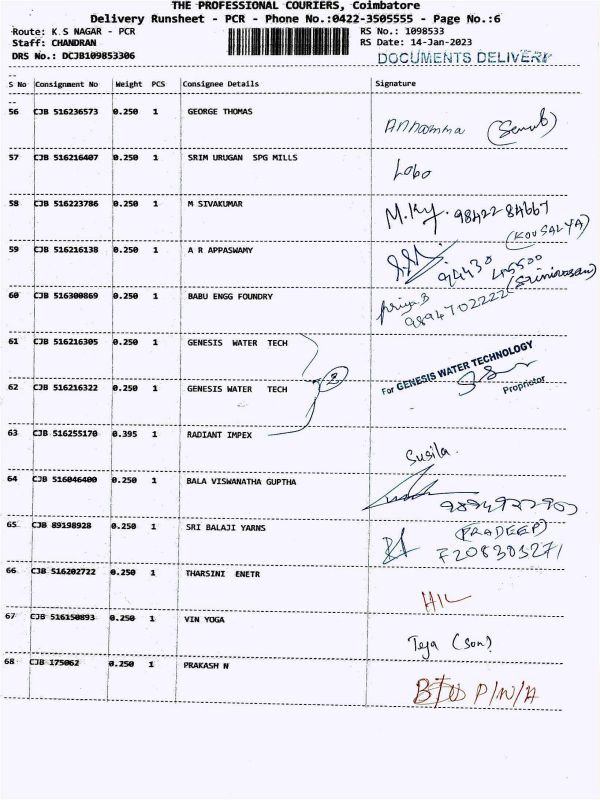 THE PROFESSIONAL COURIERS, Coimbatore
Delivery Runsheet - PCR - Phone No.:0422-3505555 - Page No.:6
Route: K.S NAGAR - PCR RS No.: 1098533
Staff: CHANDRAN RS Date: 14-Jan-2023
DRS No.: DCJB109853306 DOCUMENTS DELIVERY
S No Consignment No Weight PCS Consignee Details Signature
56 CJB 516236573 0.250 1 GEORGE THOMAS
Annamma
57 CJB 516216407 0.250 1 SRIM URUGAN SPG MILLS
Lobo
58 CJB 516223786 0.250 1 M SIVAKUMAR
M.Ky. 98422 84667
(KOUSALYA)
59 CJB 516216138 0.250 1 A R APPASWAMY
94430
(Srinivasan)
60 CJB 516300869 0.250 1 BABU ENGG FOUNDRY
Priya.B
9894702222
61 CJB 516216305 0.250 1 GENESIS WATER TECH
For GENESIS WATER TECHNOLOGY
2
Proprietor
62 CJB 516216322 0.250 1 GENESIS WATER TECH
63 CJB 516255170 0.395 1 RADIANT IMPEX
Susila.
64 CJB 516046400 0.250 1 BALA VISWANATHA GUPTHA
65 CJB 89198928 0.250 1 SRI BALAJI YARNS
(PRADEEP)
7208303271
66 CJB 516202722 0.250 1 THARSINI ENETR
H/L
67 CJB 516150893 0.250 1 VIN YOGA
Teja (Son)
68 CJB 175062 0.250 1 PRAKASH N
P/N/A